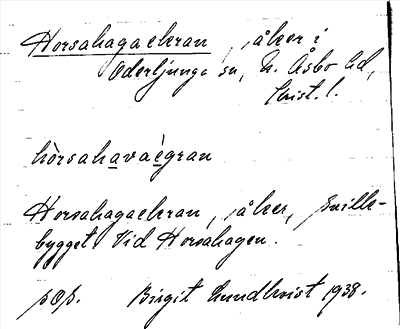 Horsahagaekran, åker i
Oderljunga sn, N. Åsbo hd,
Krist. l.
hòrsahavaègran
Horsahagaekran, åker, Snille-
bygget. Vid Horsahagen.
Birgit Lundkvist 1938.